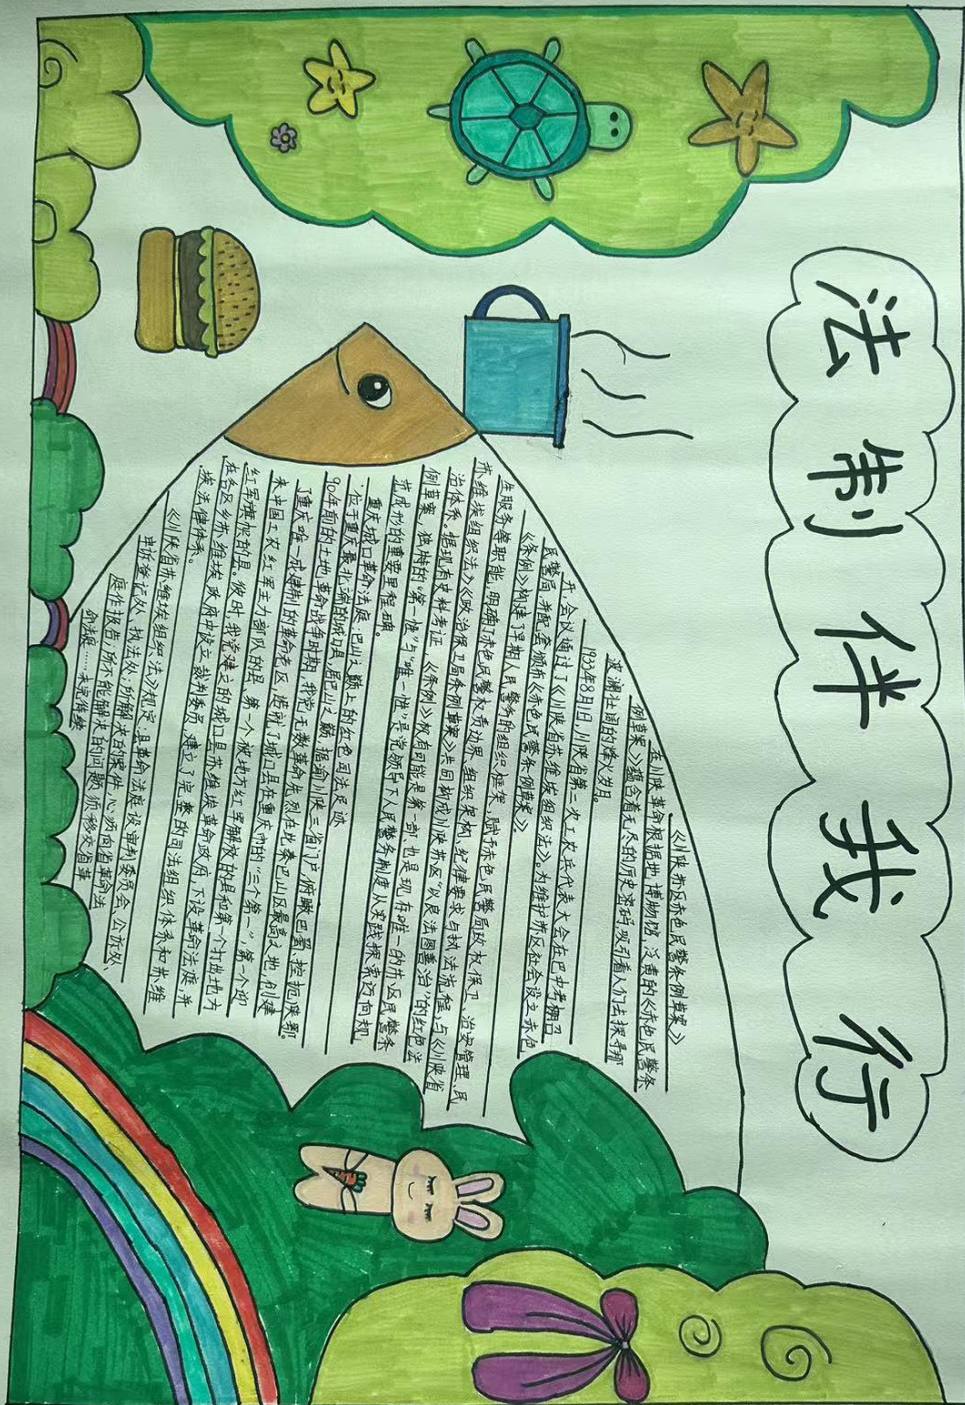 法制伴我行
《川陕苏区赤色民警条例草案》
在川陕革命根据地博物馆，泛黄的《赤色民警条
例草案》蕴含着无尽的历史密码，吸引着人们去探寻那
波澜壮阔的烽火岁月。
1933年8月1日，川陕省第二次工农兵代表大会在巴中考棚召
开，会议通过了《川陕省苏维埃组织法》。为维护苏区社会设立赤色
民警局，并配套颁布《赤色民警条例草案》。
《条例》构建了早期人民警务的组织框架，赋予赤色民警局政权保卫、治安管理、民
生服务等职能，明确了赤色民警权责边界、组织架构、纪律要求与执法流程，与《川陕省
苏维埃组织法》《政治保卫局条例草案》共同渐成川陕苏区“以良法图善治”的红色法
治体系。据现有史料考证，《条例》极有可能是第一部，也是现存唯一的苏区民警条
例草案，独特的“第一性”与“唯一性”是党领导下人民警务制度从实践探索迈向规
范成形的重要里程碑。
重庆城口革命法庭：巴山之巅上的红色司法足迹
位于重庆最北端的城口县，居巴山之巅，据渝川陕三省门户，俯瞰巴蜀，控扼陕鄂。
90年前的土地革命战争时期，我党无数革命先烈在此秦巴山区最高之地，创建
了重庆唯一成建制的革命老区，造就了城口县在重庆市的“三个第一”，第一个迎
来中国工农红军主力部队的县、第一个被地方红军解放的县和第一个打出地方
红军旗帜的县。彼时，我党建立的城口县苏维埃革命政府，下设革命法庭，并
在各区乡苏维埃政府中设立裁判委员，建立了完整的司法组织体系和苏维
埃法律体系。
《川陕省苏维埃组织法》规定：县革命法庭设审判委员会、公诉处、
申诉登记处、执法处，所解决的案件，必须向省革命法
庭作报告，所不能解决的问题，须移交省革
命法庭……未完待续